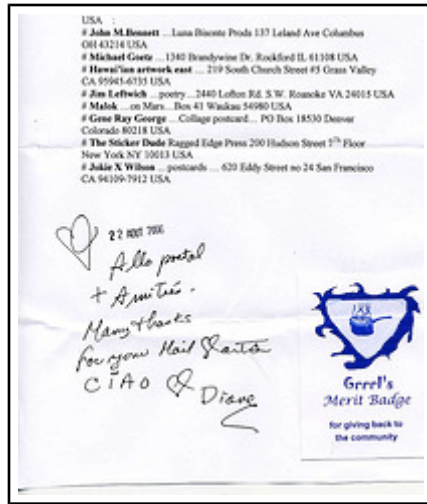 USA :
# John M.Bennett ... Luna Bisonte Prods 137 Leland Ave Columbus
OH 43214 USA
# Michael Goetz ...1340 Brandywine Dr. Rockford IL 61108 USA
# Hawai'ian artwork east ... 219 South Church Street #5 Grass Valley
CA 95945-6735 USA
# Jim Leftwich ...poetry ...2440 Lofton Rd. S.W. Roanoke VA 24015 USA
# Malok ... on Mars... Box 41 Waukau 54980 USA
# Gene Ray George ... Collage postcard ... PO Box 18530 Denver
Colorado 80218 USA
# The Sticker Dude Ragged Edge Press 200 Hudson Street 7th Floor
New York NY 10013 USA
# Jokie X Wilson ... postcards ... 620 Eddy Street no 24 San Francisco
CA 94109-7912 USA
22 AOUT 2006
Allo postal
+ Amitiés.
Many thanks
for your Mail
CIAO Diane
Grrrl's
Merit Badge
for giving back to
the community